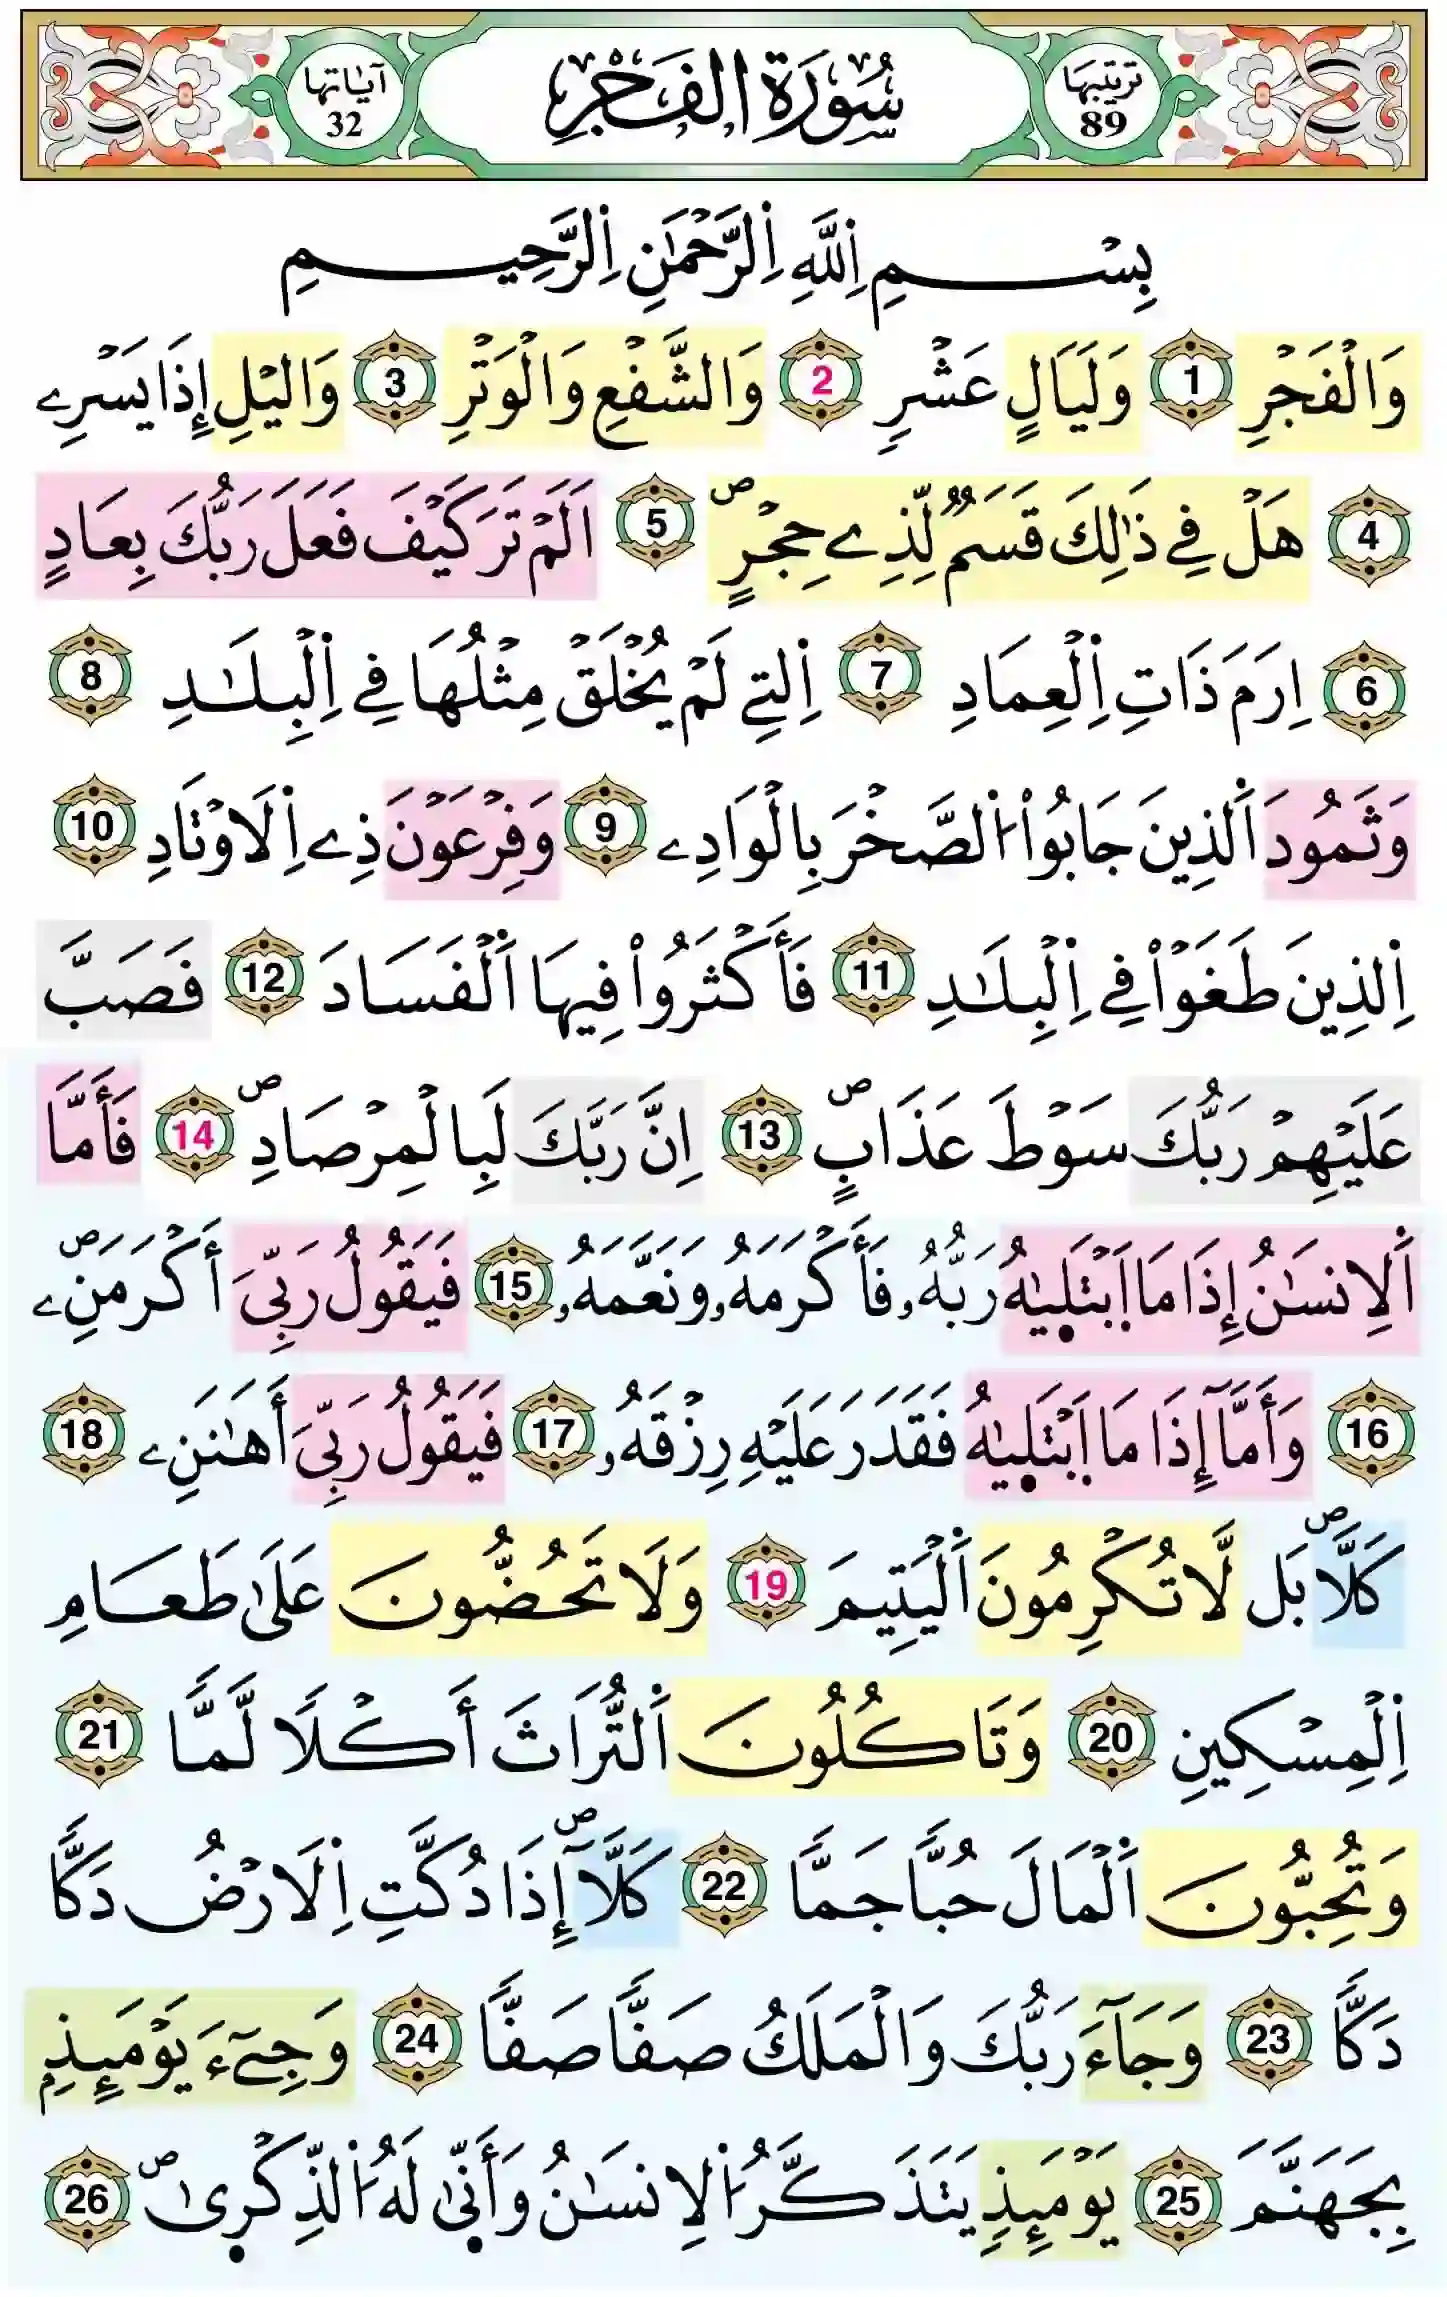 ترتيبها 89 سُورَةُ الفَجْرِ آيَاتُهَا 32
بِسْمِ اِ۬للَّهِ اِ۬لرَّحْمَٰنِ اِ۬لرَّحِيمِ
وَالْفَجْرِ 1 وَلَيَالٍ عَشْرٖ 2 وَالشَّفْعِ وَالْوَتْرِ 3 وَاليْلِ إِذَا يَسْرِۦ
4 هَلْ فِے ذَٰلِكَ قَسَمٞ لِّذِے حِجْرٍۖ 5 اَلَمْ تَرَ كَيْفَ فَعَلَ رَبُّكَ بِعَادٍ
6 اِرَمَ ذَاتِ اِ۬لْعِمَادِ 7 اِ۬لتِے لَمْ يُخْلَقْ مِثْلُهَا فِے اِ۬لْبِلَٰدِ 8
وَثَمُودَ اَ۬لذِينَ جَابُواْ اُ۬لصَّخْرَ بِالْوَادِۦ 9 وَفِرْعَوْنَ ذِے اِ۬لَاوْتَادِ 10
اِ۬لذِينَ طَغَوْاْ فِے اِ۬لْبِلَٰدِ 11 فَأَكْثَرُواْ فِيهَا اَ۬لْفَسَادَ 12 فَصَبَّ
عَلَيْهِمْ رَبُّكَ سَوْطَ عَذَابٍۖ 13 اِنَّ رَبَّكَ لَبِالْمِرْصَادِۖ 14 فَأَمَّا
اَ۬لِانسَٰنُ إِذَا مَا اَ۪بْتَل۪يٰهُ رَبُّهُۥ فَأَكْرَمَهُۥ وَنَعَّمَهُۥ 15 فَيَقُولُ رَبِّيَ أَكْرَمَنِۦۖ
16 وَأَمَّآ إِذَا مَا اَ۪بْتَل۪يٰهُ فَقَدَرَ عَلَيْهِ رِزْقَهُۥ 17 فَيَقُولُ رَبِّيَ أَهَٰنَنِۦ 18
كَلَّاۖ بَل لَّا تُكْرِمُونَ اَ۬لْيَتِيمَ 19 وَلَا تَحُضُّونَ عَلَىٰ طَعَامِ
اِ۬لْمِسْكِينِ 20 وَتَاكُلُونَ اَ۬لتُّرَاثَ أَكْلٗا لَّمّٗا 21
وَتُحِبُّونَ اَ۬لْمَالَ حُبّٗا جَمّٗا 22 كَلَّآۖ إِذَا دُكَّتِ اِ۬لَارْضُ دَكّٗا
دَكّٗا 23 وَجَآءَ رَبُّكَ وَالْمَلَكُ صَفّٗا صَفّٗا 24 وَجِےٓءَ يَوْمَئِذِۢ
بِجَهَنَّمَ 25 يَوْمَئِذٖ يَتَذَكَّرُ اُ۬لِانسَٰنُ وَأَنّ۪ىٰ لَهُ اُ۬لذِّكْر۪ىٰۖ 26